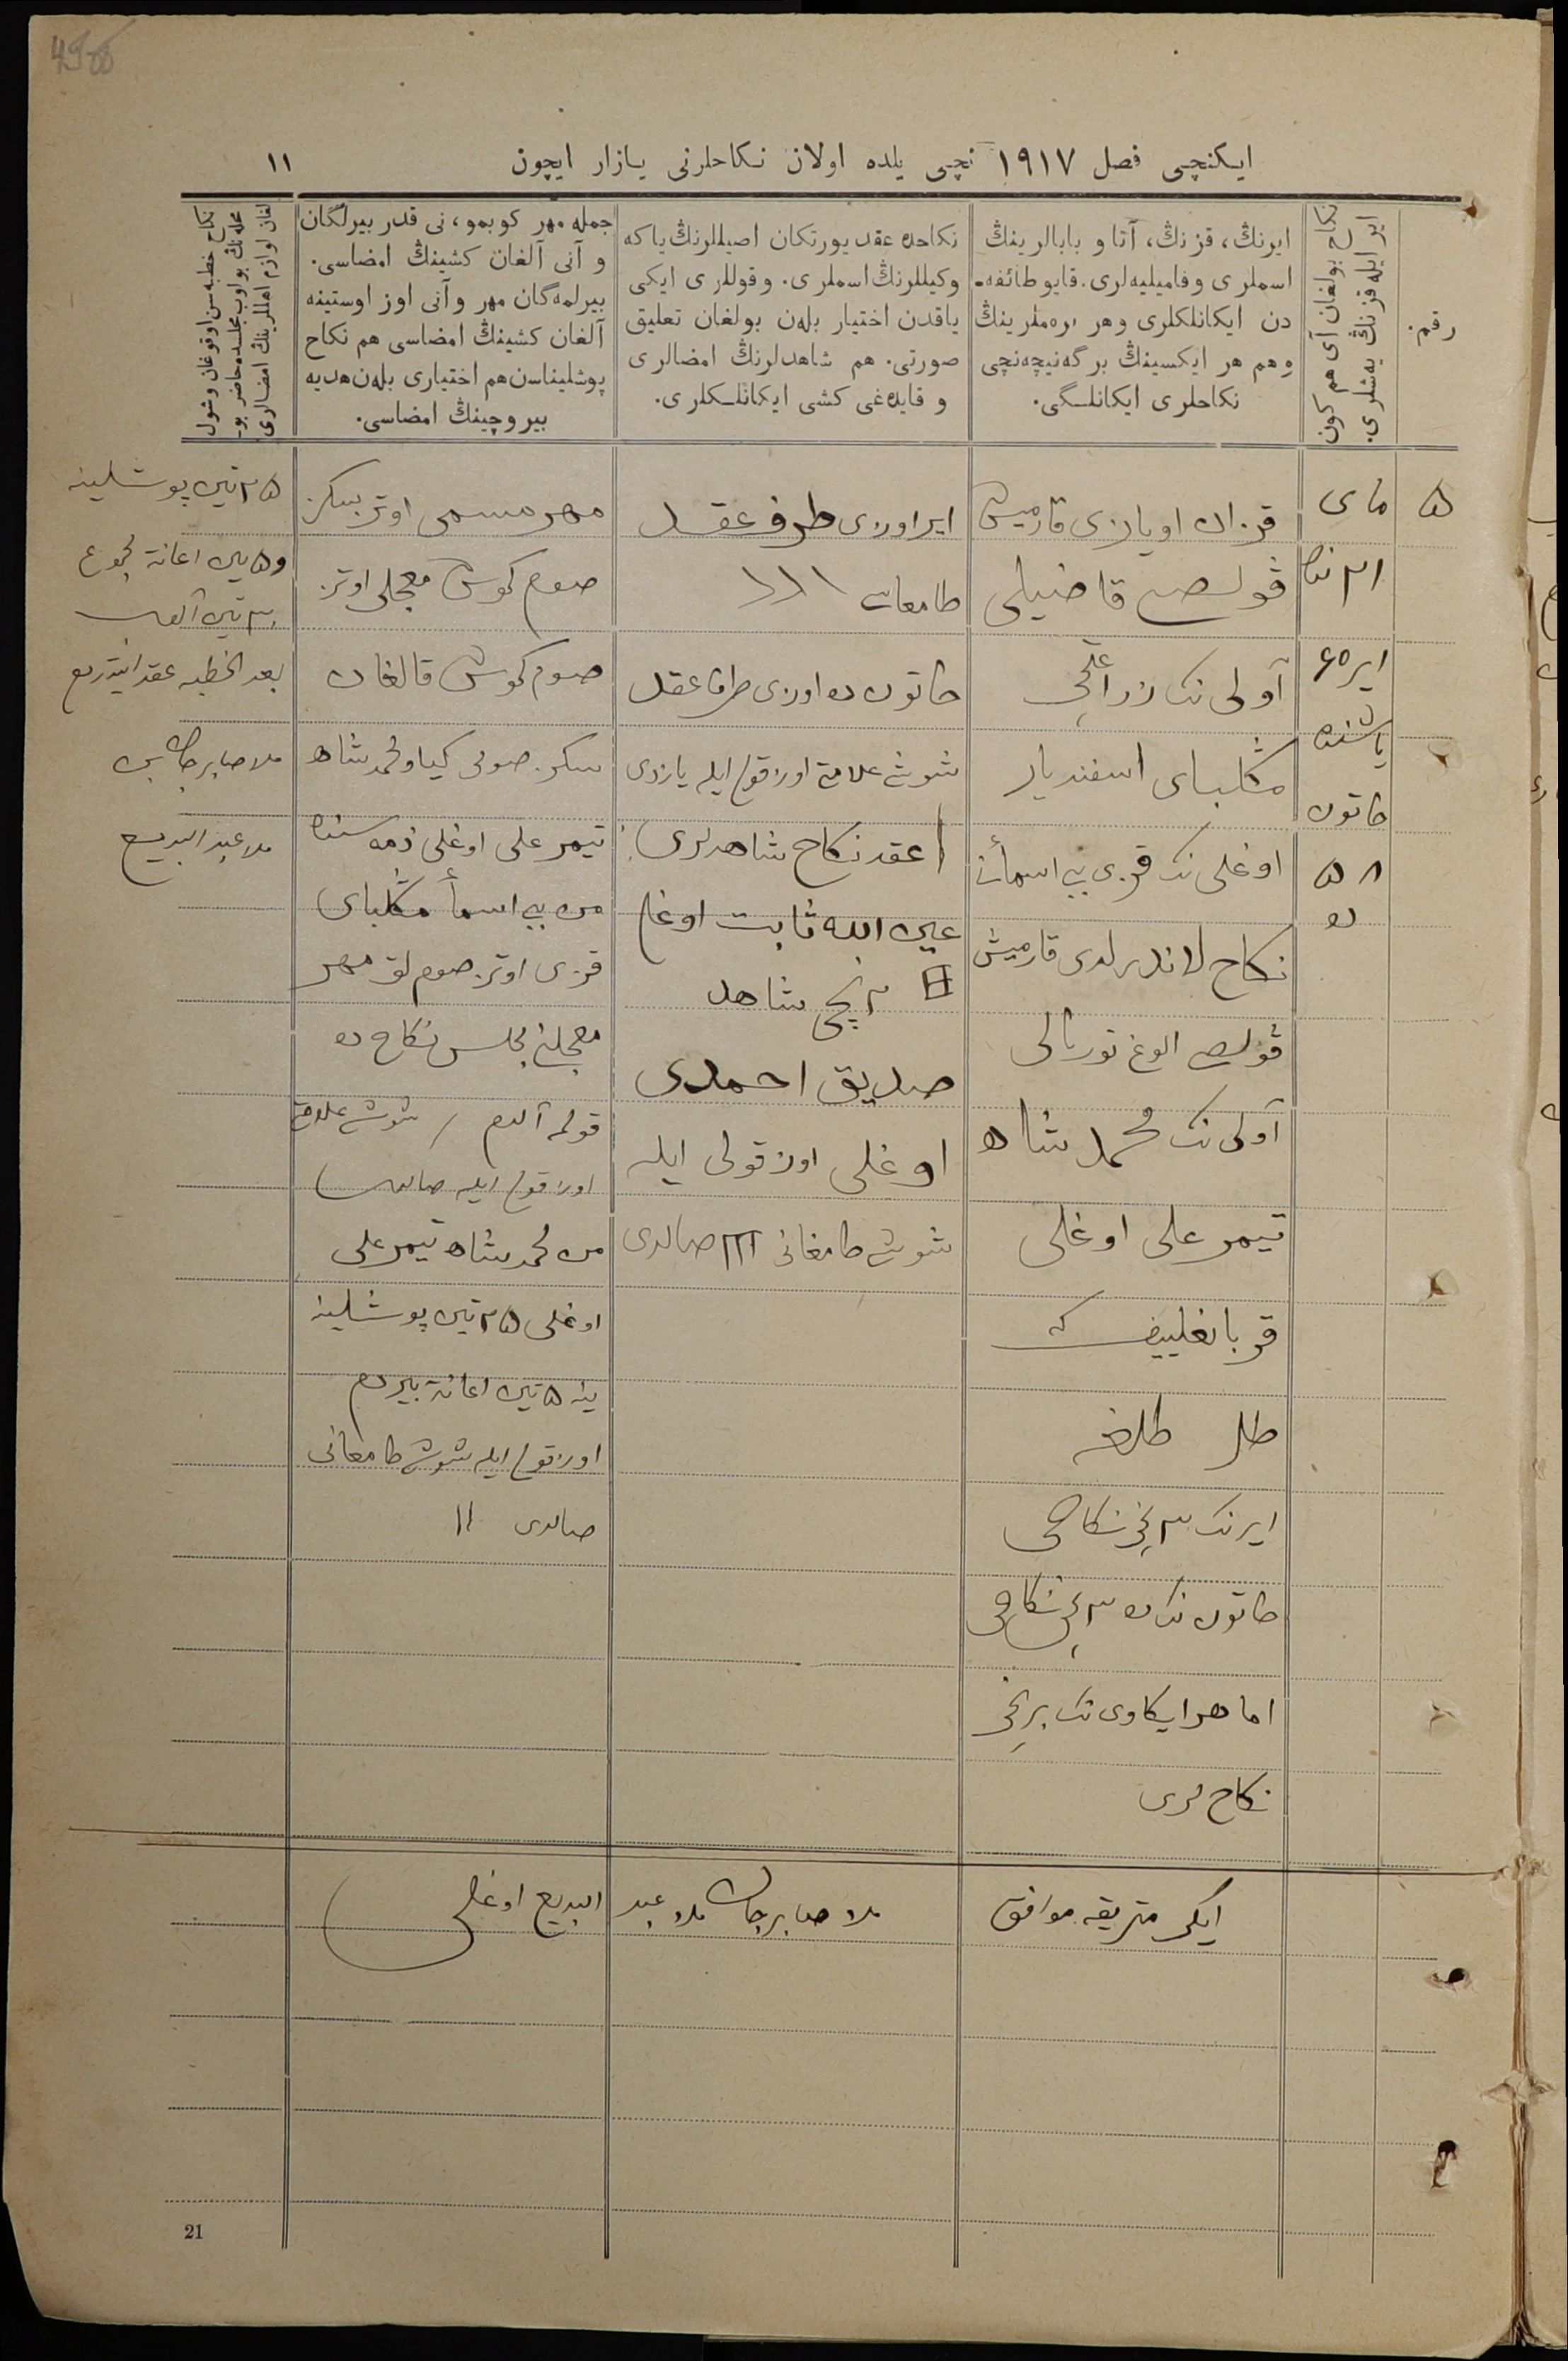 ایکنچی فصل ۱۹۱۷ نچی یلده اولان نکاحلرنی یازار ایچون
۱۱
رقم.
نکاح بولغان آی هم کون
ایر ایله قزنڭ یه‌شلری.
ایرنڭ، قزنڭ، آتا و بابالرینڭ
اسملری و فامیلیه‌لری. قایو طائفه‌-
دن ایکانلکلری وهر بره‌ملرینڭ
وهم هر ایکسینڭ برگه‌نیچه‌نچی
نکاحلری ایکانلـگی.
نکاحده عقد یورتکان اصیللرنڭ یاکه
وکیللرنڭ اسملری. و قوللری ایکی
یاقدن اختیار بله‌ن بولغان تعلیق
صورتی. هم شاهدلرنڭ امضالری
و قایده‌غی کشی ایکانلـکلری.
جمله مهر کوبمو، نی قدر بیرلگان
و آنی آلغان کشینڭ امضاسی.
بیرلمه‌گان مهر و آنی اوز اوستینه
آلغان کشینڭ امضاسی هم نکاح
پوشلیناسن هم اختیاری بله‌ن هدیه
بیروچینڭ امضاسی.
نکاح خطبه‌سن اوقوغان و شول
محله‌نڭ بو اوب مجلسده حاضر بو-
لغان لوازم اهللرینڭ امضالری
۵
مای
۲۱ نده
ایر ۶۵
یاشنده
خاتون
۵۸
ده
قزان اویازی قارمیش
ڤولصی قاضیلی
آولی نک
مڭلبای اسفندیار
اوغلی نک قزی بی اسمأنی
نکاح لاندرلدی قارمیش
ڤولصی الوغ نورنالی
آولی نک محمد شاه
تیمر علی اوغلی
قربانغلییف که
طلا طلغه
ایرنک ۳ نچی نکاحی
خاتون نک ده ۳ نچی نکاحی
اما هر ایکاوی نک برنچی
نکاح لری
ایر اوزی طرف عقد
طامغاسی \\\
خاتون ده اوزی طرف عقد
شوشی علامة اوز قولی ایله یازدی
عقد نکاح شاهدلری:
عین الله ثابت اوغلی
۲ نچی شاهد
صدیق احمدی
اوغلی اوز قولی ایله
شوشی طامغانی صالدی
مهر مسمی اوتز سکز
صوم کموش معجلی اوتز
صوم کموش قالغان
سکز صومی کیاو محمد شاه
تیمر علی اوغلی ذمه سنده
من بی اسمأ مڭلبای
قزی اوتز صوم لق مهر
معجلنی مجلس نکاح ده
قولمه آلدم / شوشی علامة
اوز قولی ایله صالدی
من محمد شاه تیمر علی
اوغلی ۲۵ تین پوشلینه
ینه ۵ تین اعانة بیردم
اوز قولی ایله شوشی طامغانی
صالدی ۱۱
۲۵ تین پوشلینه
و ۵ تین اعانة مجموع
۳۰ تین آلوب
بعد الخطبه عقد ایتدردم
ملا صابرجان بن
ملا عبد البدیع
ایکی متریقه موافق
ملا صابرجان ملا عبد البدیع اوغلی
21